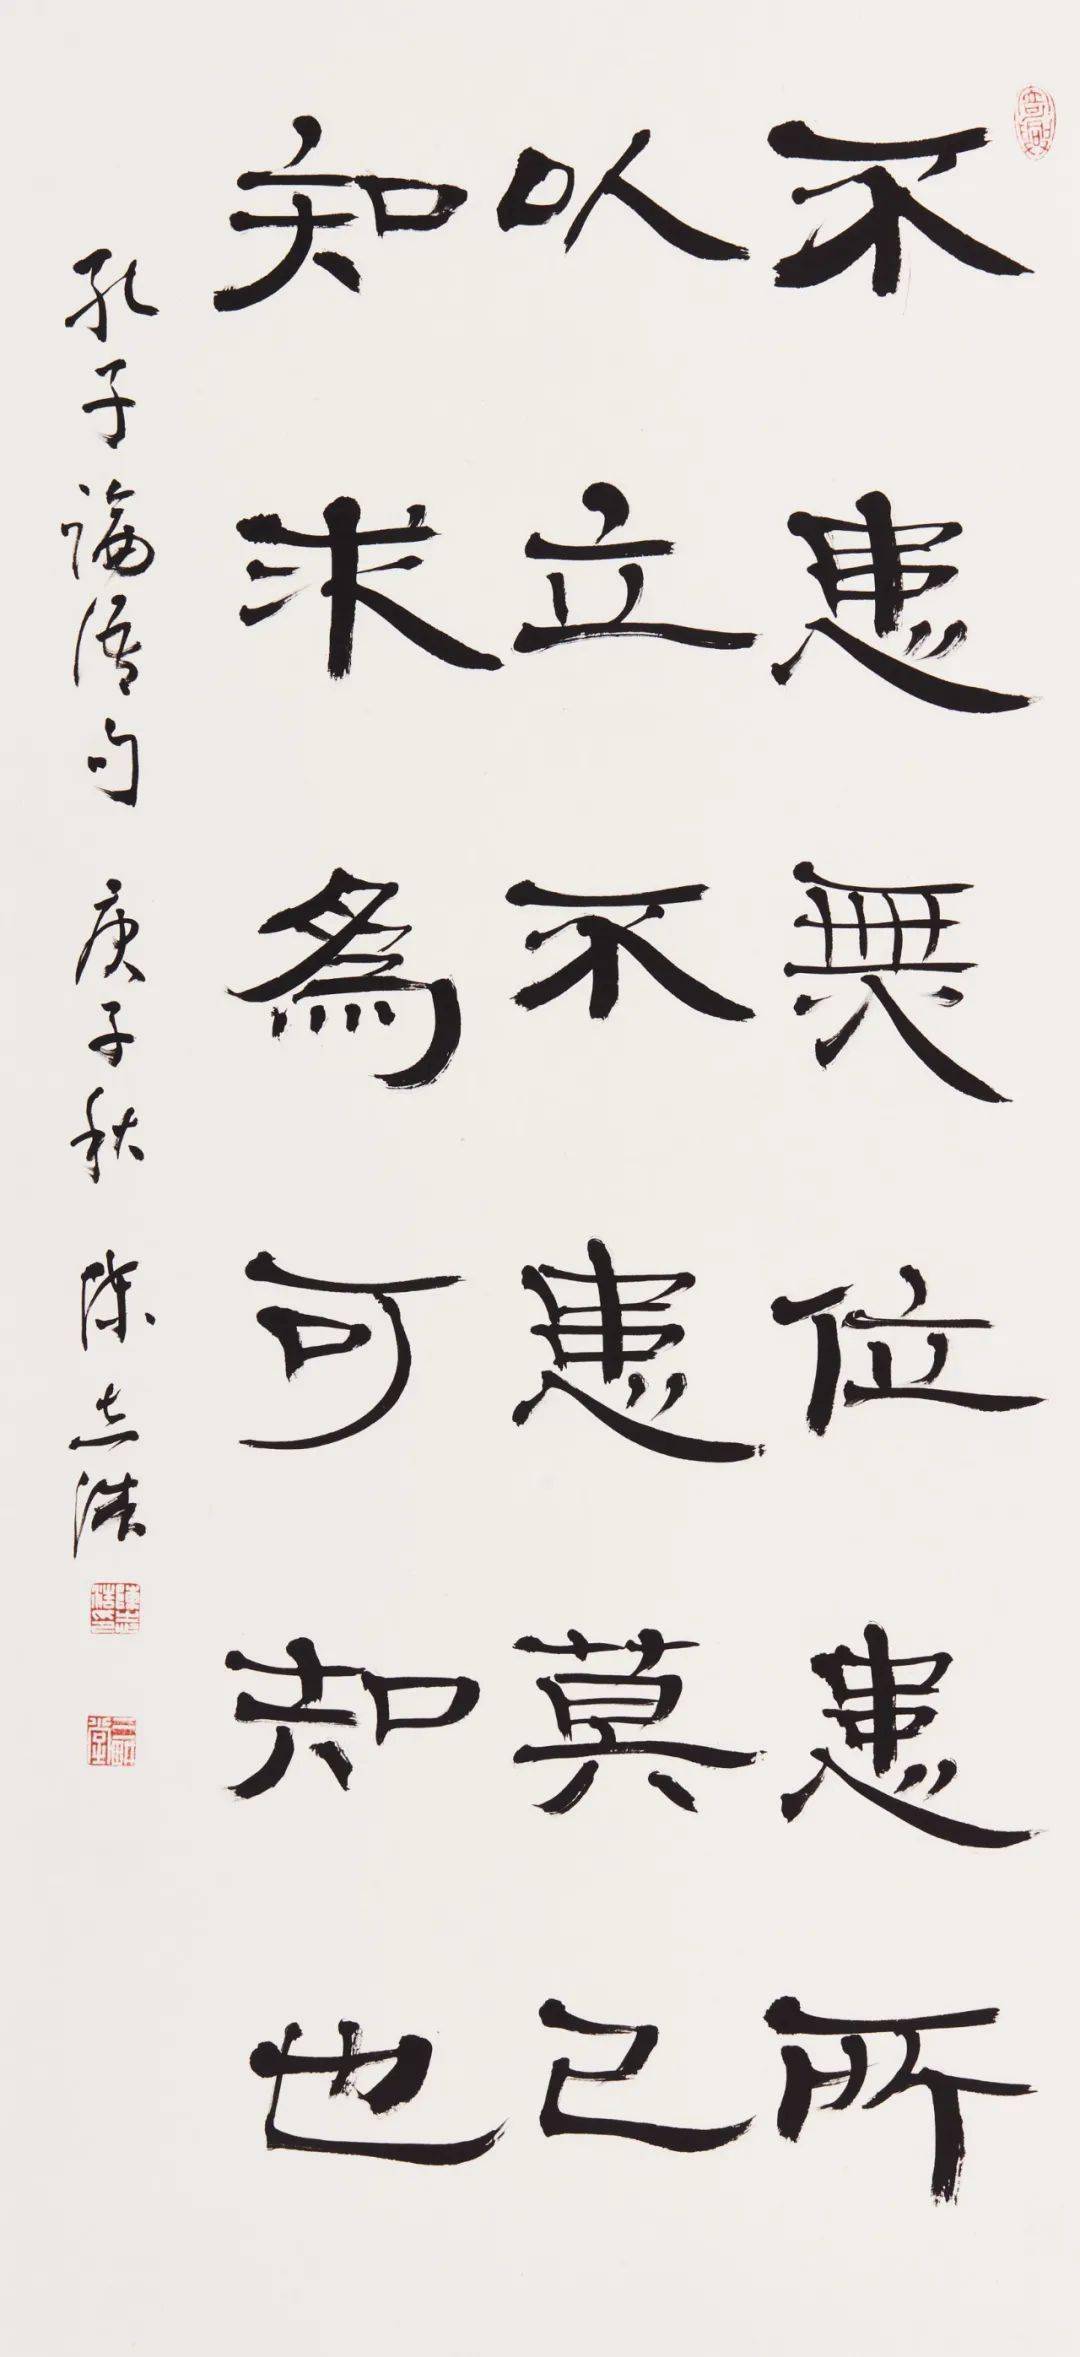 不患無位患所
以立不患莫己
知求為可知也
孔子論語句 庚子秋 陳志浩
陳志浩印